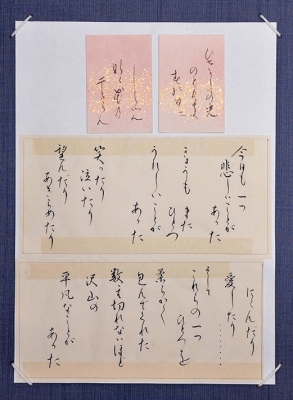 ひさかたの光
のどけき
春の日
今日も一つ
悲しいことが
あった
きょうも また
ひとつ
うれしいことが
あった
笑ったり
泣いたり
望んだり
あきらめたり
にくんだり
愛したり
………
そして
これらの一つ
ひとつを
柔らかく
包んでくれた
数え切れないほど
沢山の
平凡なことが
あった